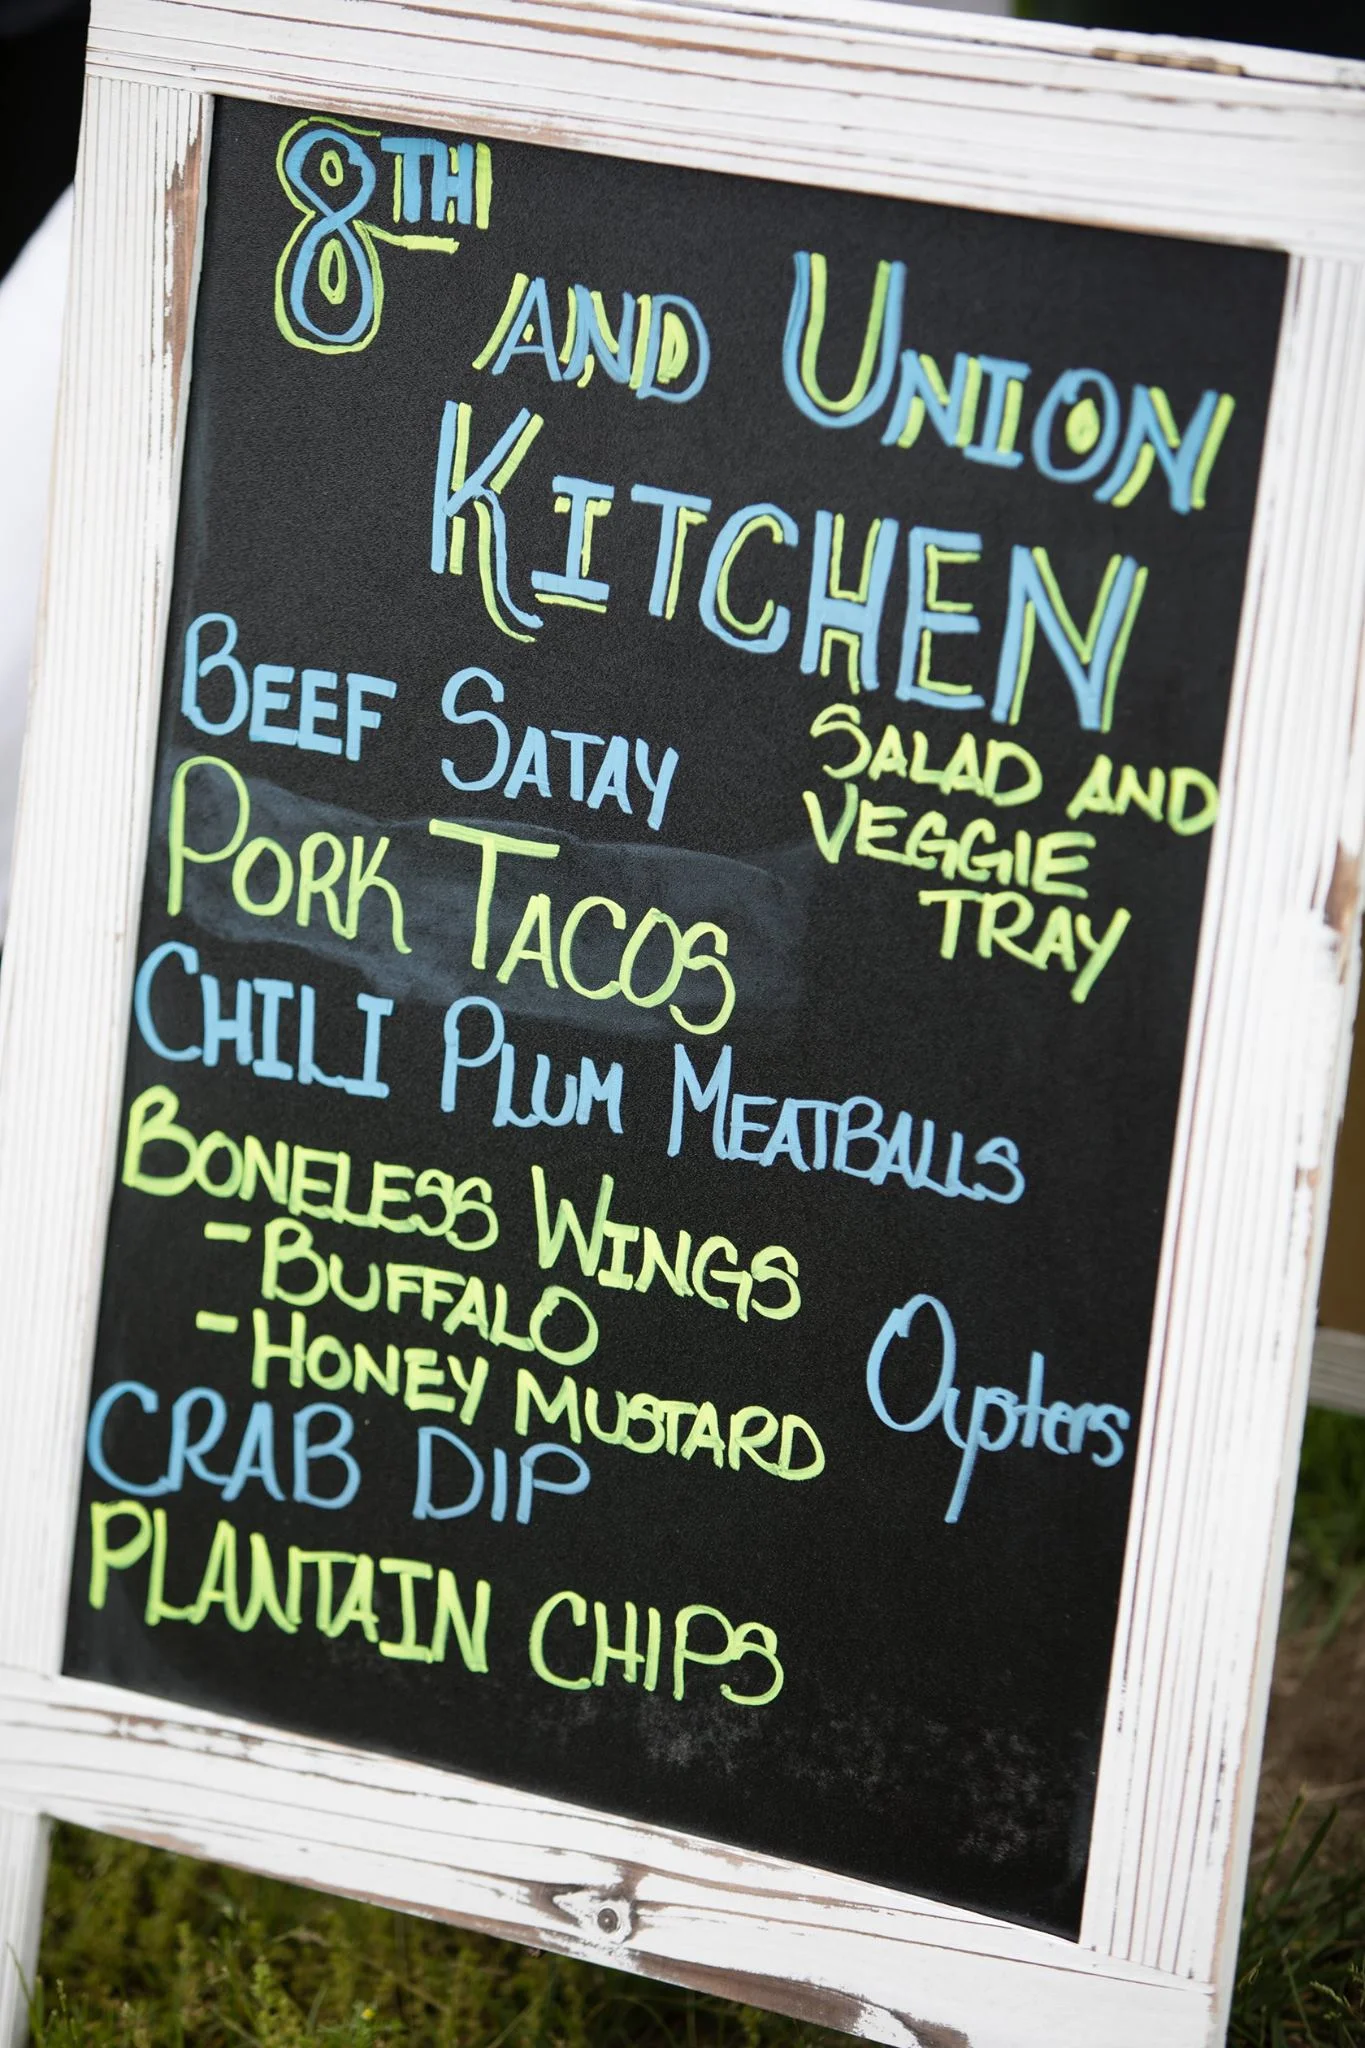 8TH
AND UNION
KITCHEN
BEEF SATAY
PORK TACOS
CHILI PLUM MEATBALLS
BONELESS WINGS
- BUFFALO
- HONEY MUSTARD
CRAB DIP
PLANTAIN CHIPS
SALAD AND
VEGGIE
TRAY
Oysters